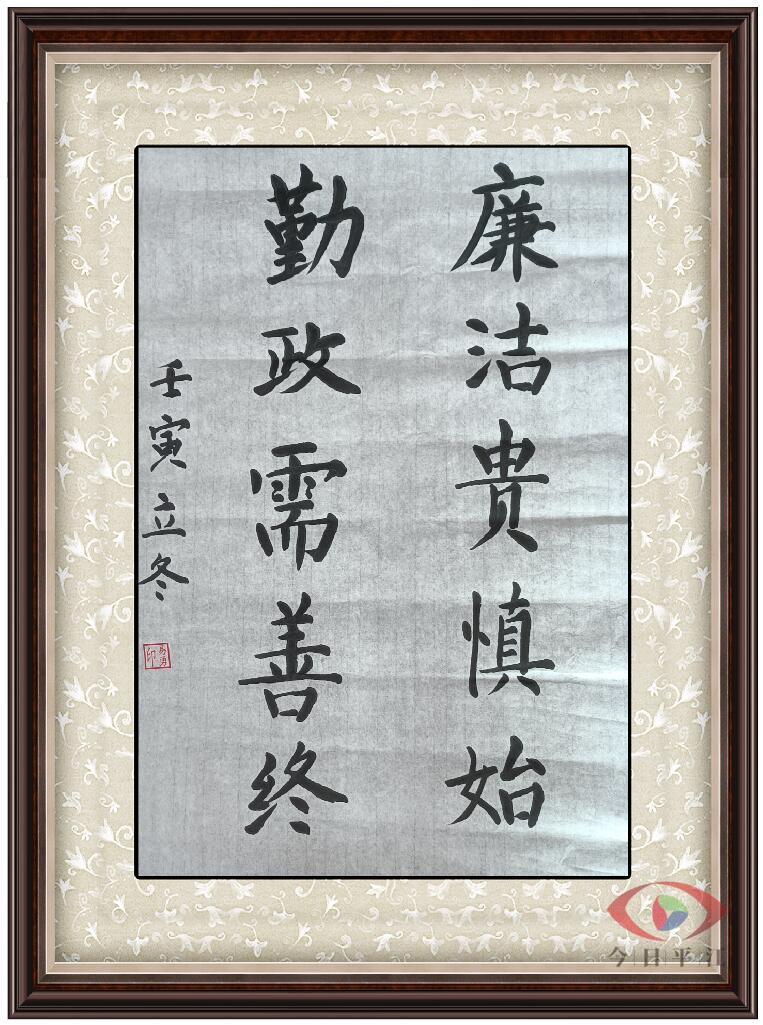 廉洁贵慎始
勤政需善终
壬寅立冬
易勇印
今日平江